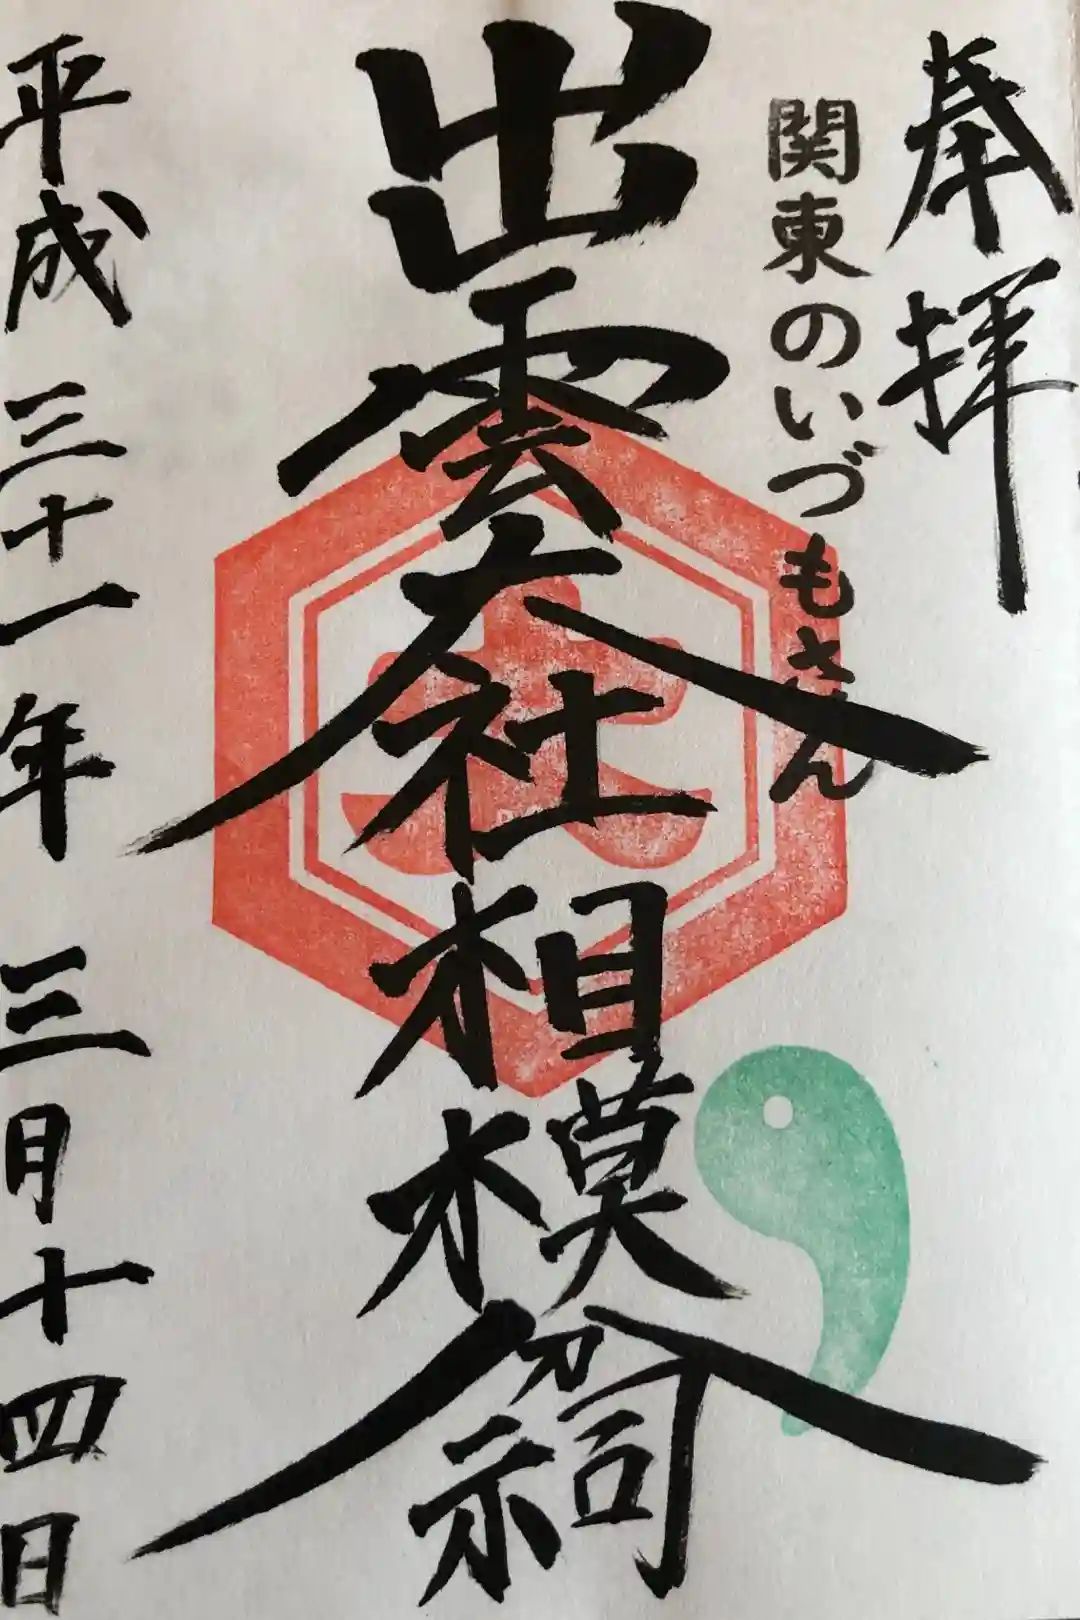 奉拝
関東のいづもさん
出雲大社相模分祠
平成三十一年三月十四日